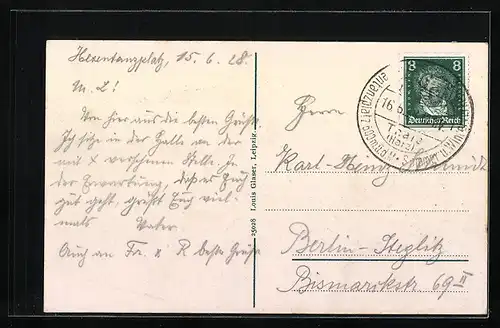 Hexentanzplatz, 15.6.28.
M. L!
Von hier aus die besten Grüße.
Ich sitze in der Halle an der
mit X versehenen Stelle. In
der Erwartung, daß es Euch
gut geht, grüßt Euch viel-
mals Vater.
Auch an Fr. u R beste Grüße
25028 Louis Glaser, Leipzig.
8 8
Deutsches Reich
16.6
Thale
(Harz)
Herrn
Karl-Heinz Schmidt
Berlin-Steglitz
Bismarckstr 69 II